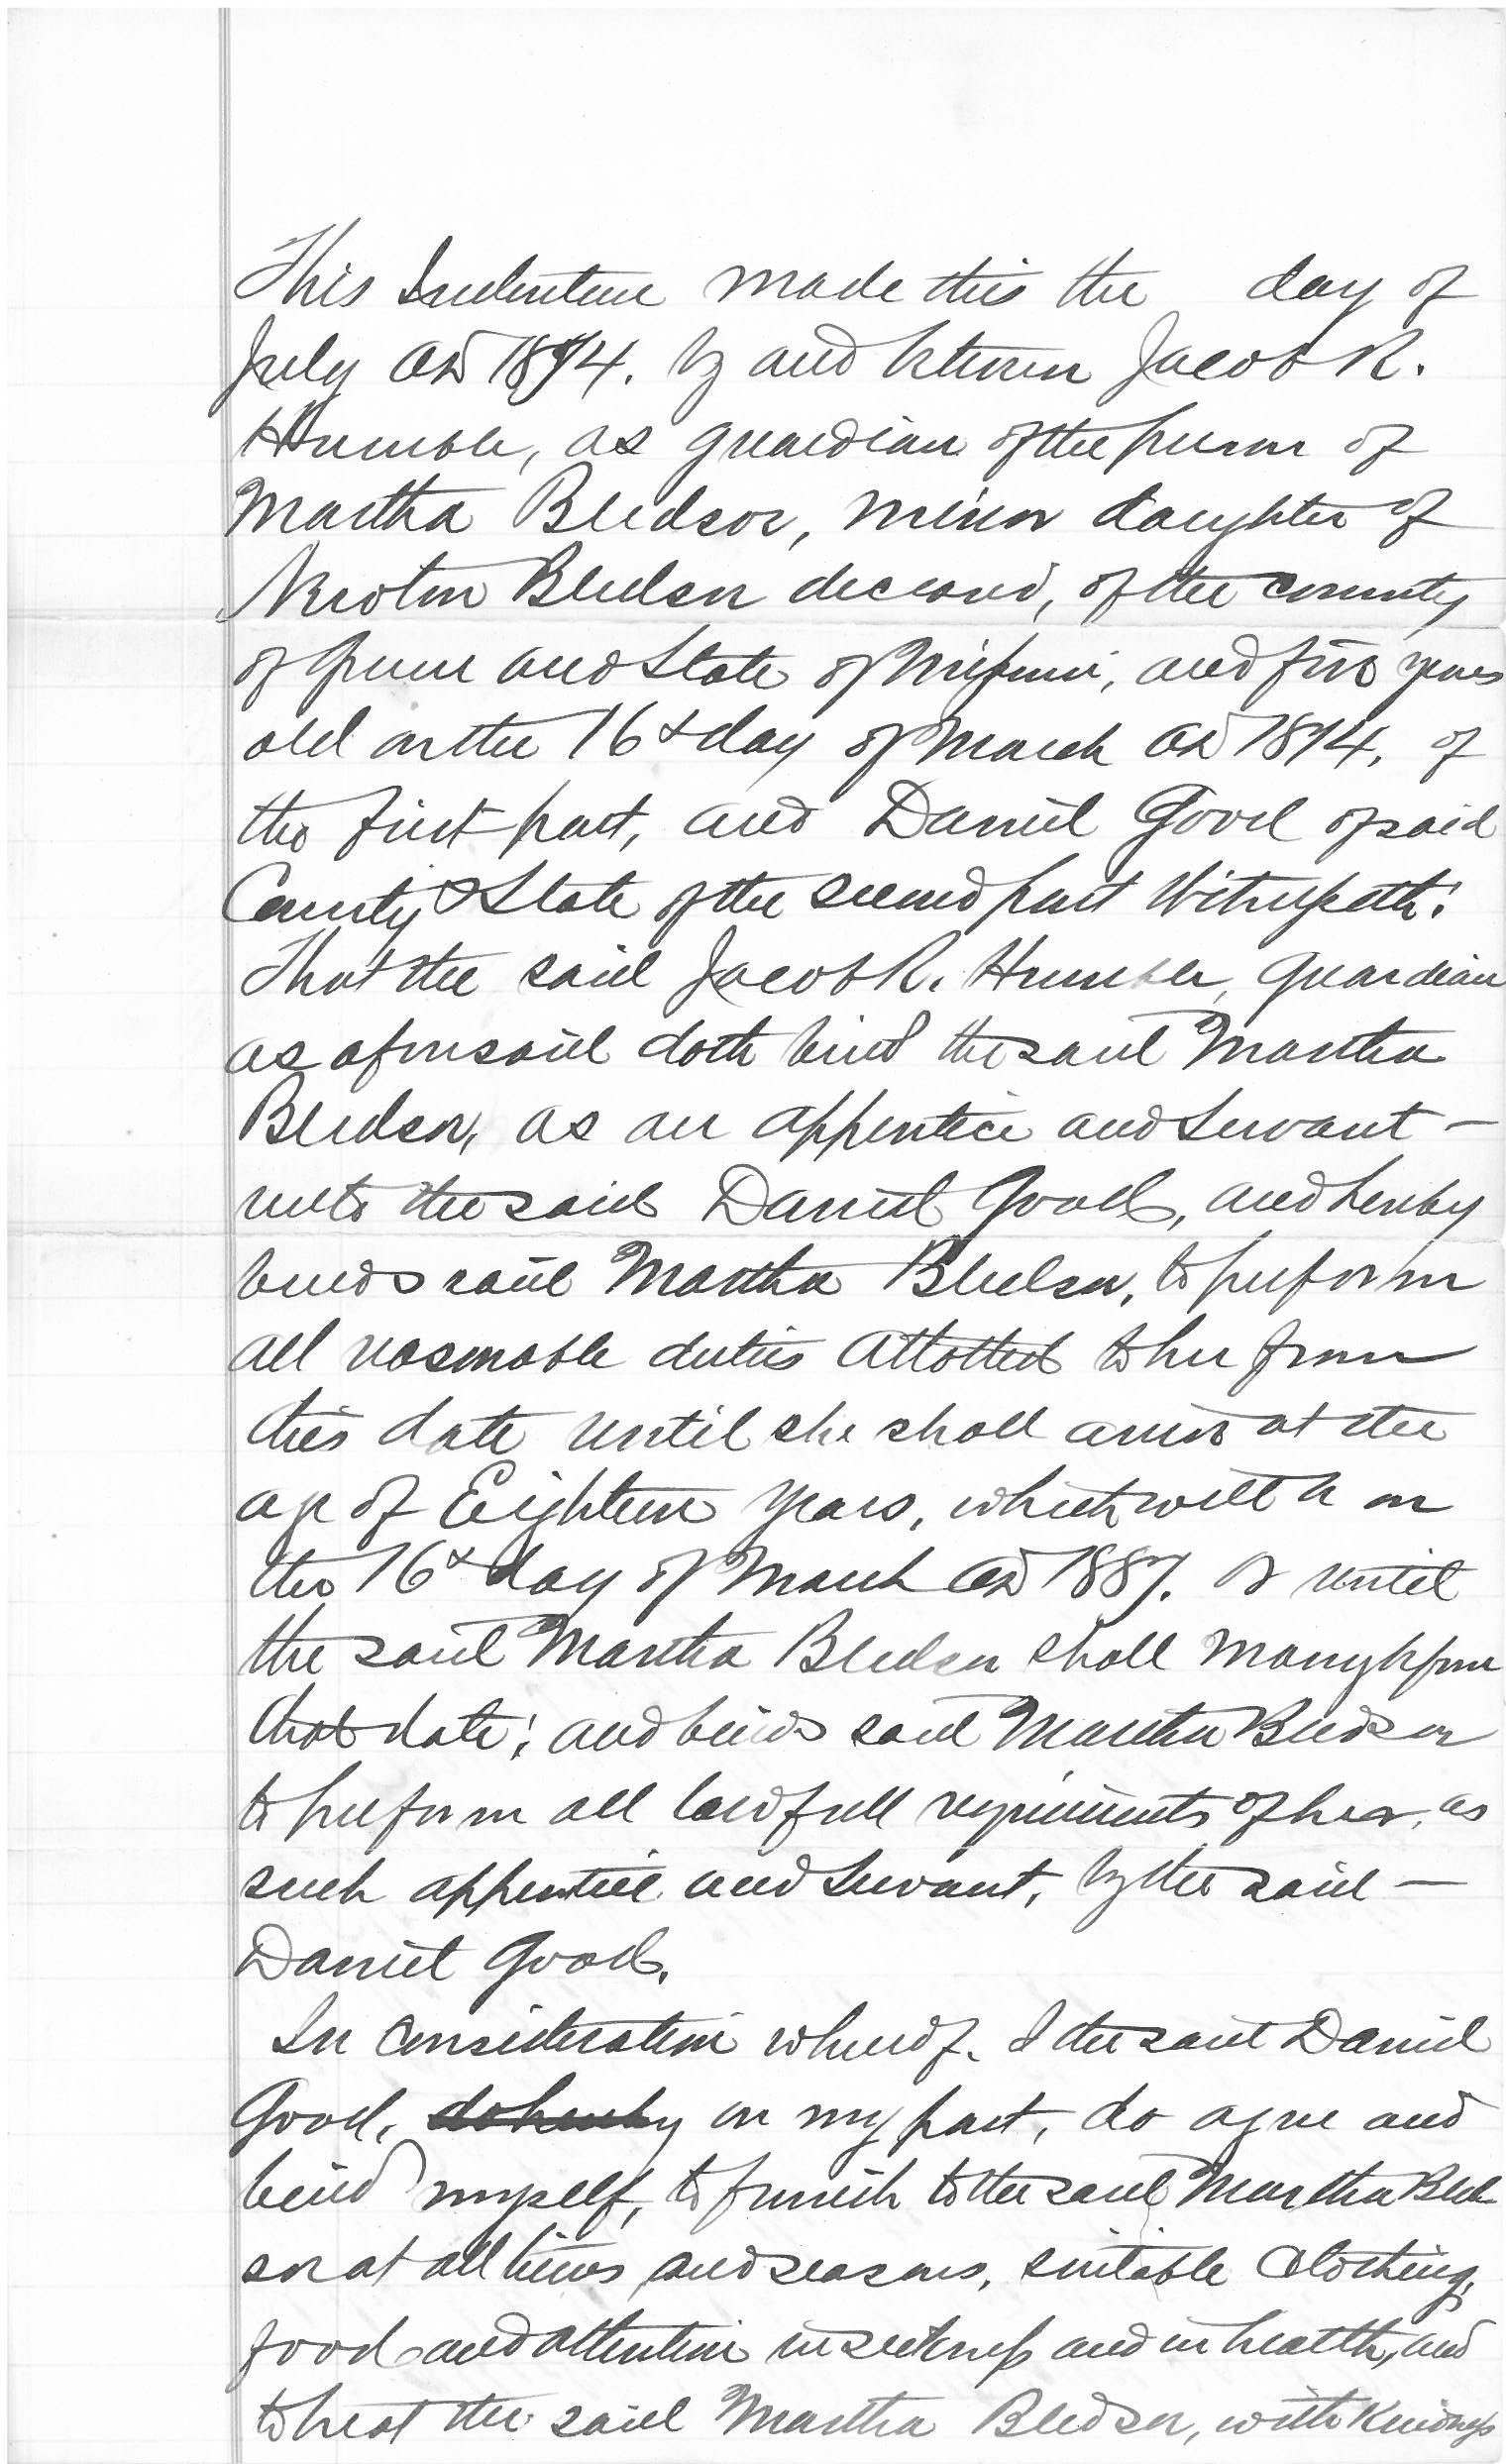 This Indenture made this the day of
July AD 1874. by and between Jacob R.
Humble, as guardian of the person of
Martha Bledsoe, minor daughter of
Newton Bledsoe deceased, of the county
of Greene and State of Missouri, and five years
old on the 16th day of March AD 1874, of
the first part, and Daniel Good of said
County & State of the second part Witnesseth:
That the said Jacob R. Humble, Guardian
as aforesaid doth bind the said Martha
Bledsoe, as an apprentice and servant —
unto the said Daniel Good, and hereby
binds said Martha Bledsoe, to preform
all reasonable duties allotted to her from
this date until she shall arive at the
age of Eighteen years, which will be on
the 16th day of March AD 1887. or until
the said Martha Bledsoe shall marry before
that date; and binds said Martha Bledsoe
to preform all lawfull requirements of her, as
such apprentice and servant, by the said —
Daniel Good.
In Consideration whereof, I the said Daniel
Good, do hereby on my part, do agree and
bind myself, to furnish to the said Martha Bled
soe at all times and seasons, suitable Clothing,
food and attention in sickness and in health, and
to treat the said Martha Bledsoe, with Kindness